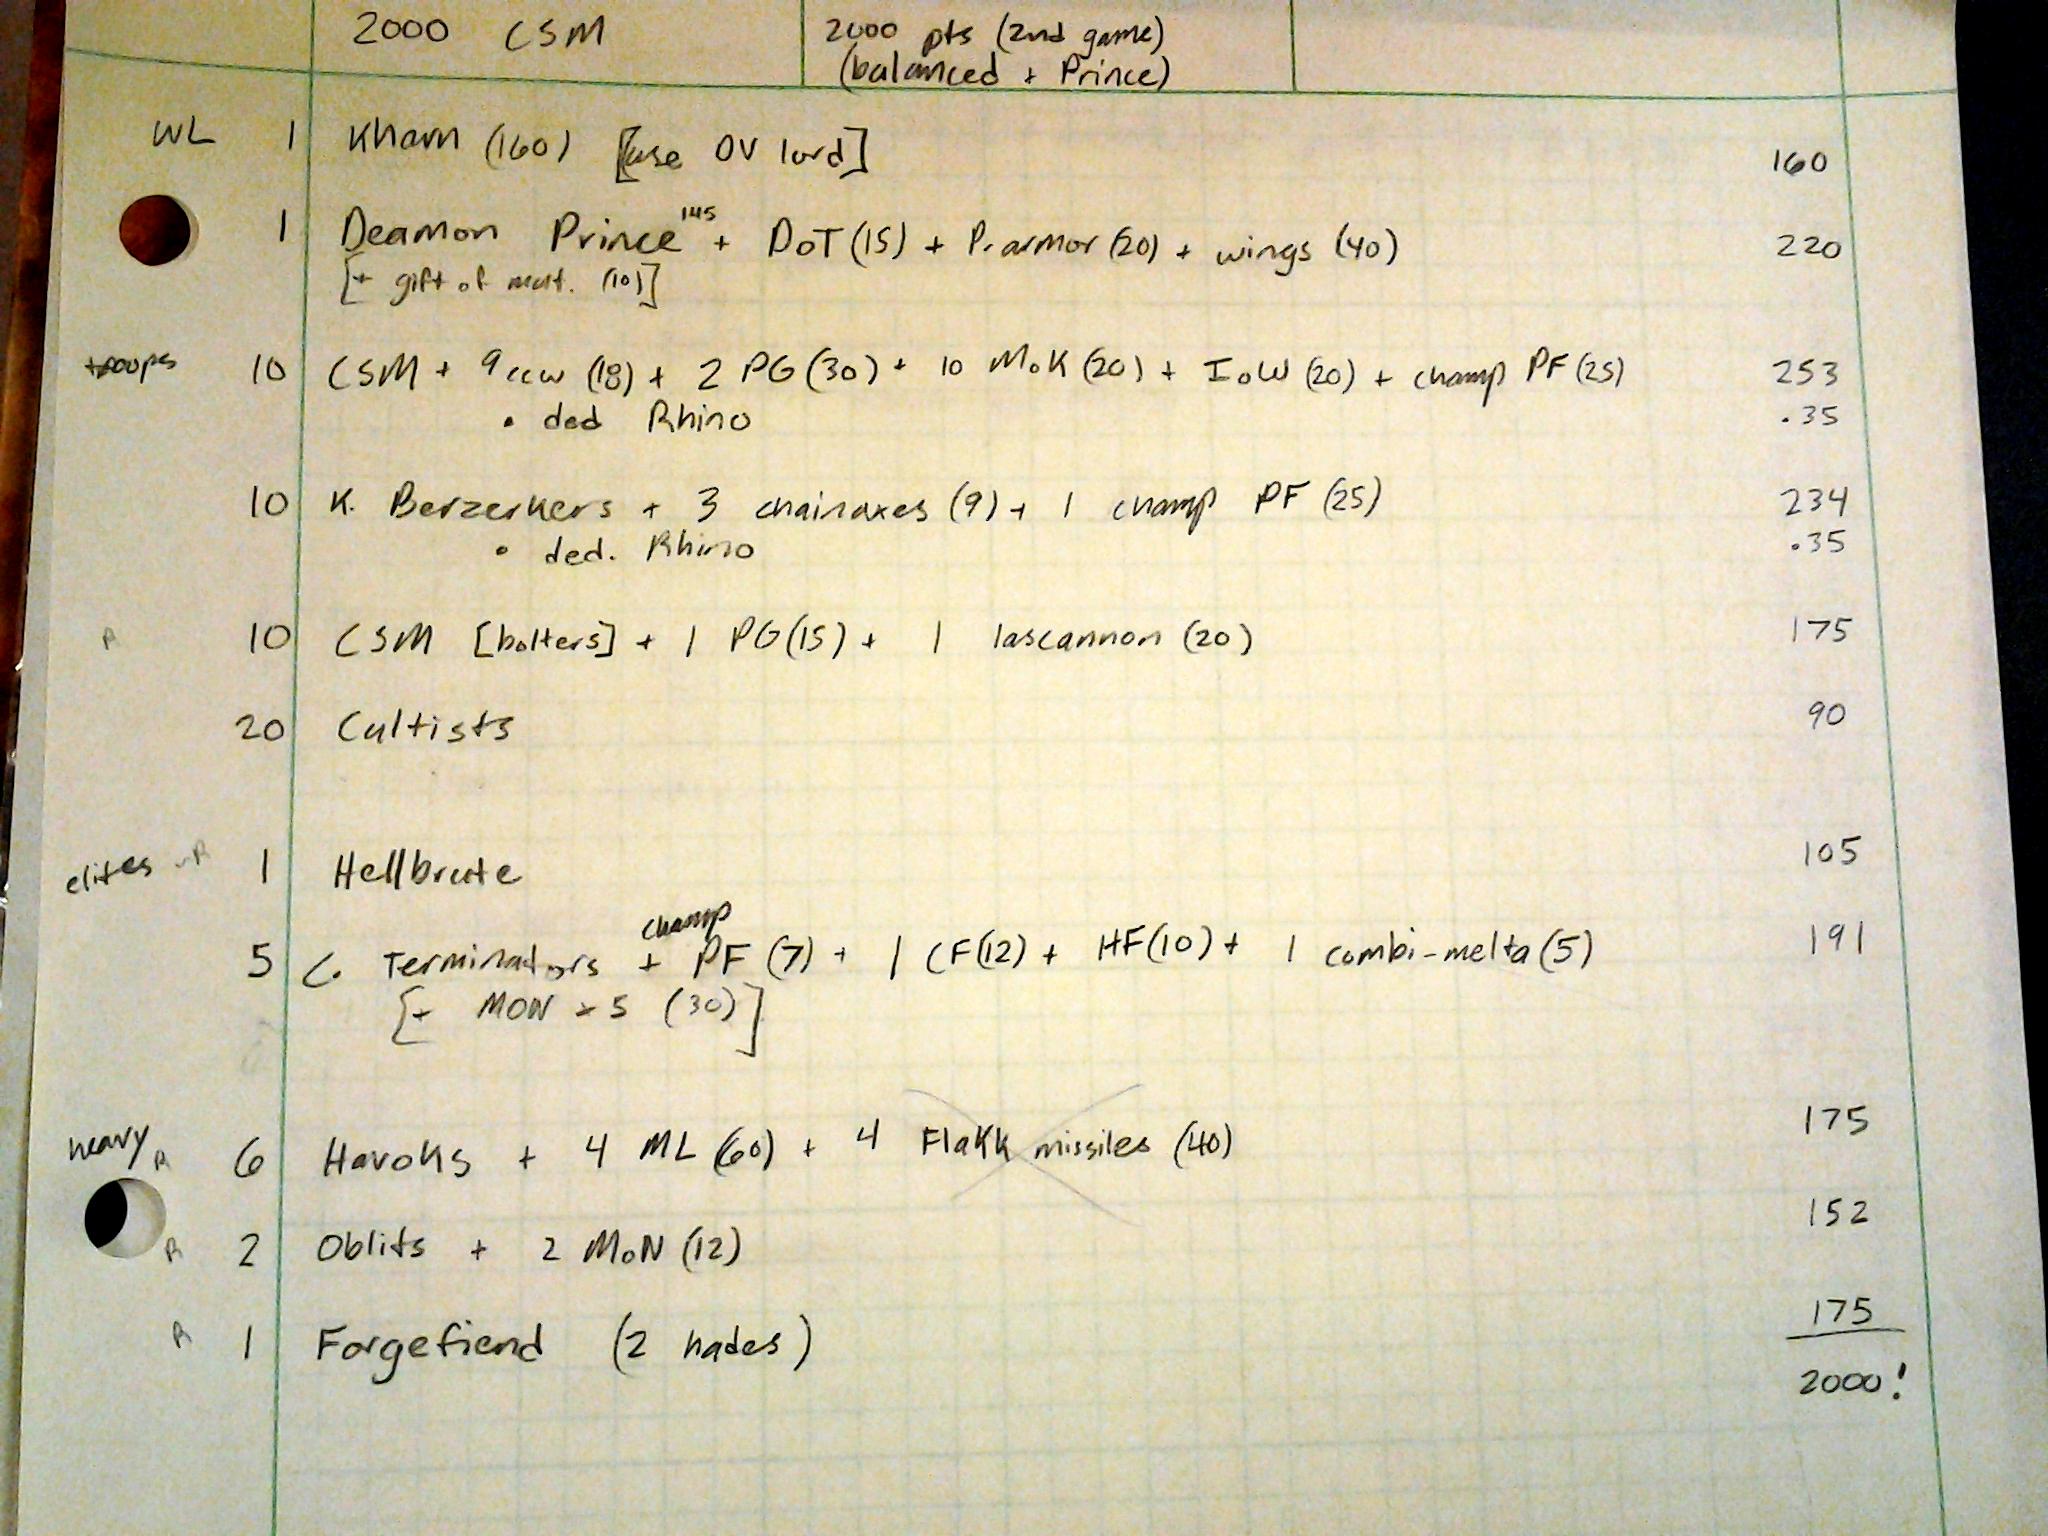 2000 CSM
2000 pts (2nd game)
(balanced + Prince)
WL 1 Kharn (160) [use OV lord] 160
1 Deamon Prince 145 + DoT (15) + P. armor (20) + wings (40) 220
[+ gift of mut. (10)]
troops 10 CSM + 9 ccw (18) + 2 PG (30) + 10 MoK (20) + IoW (20) + champ PF (25) 253
• ded Rhino .35
10 K. Berzerkers + 3 chainaxes (9) + 1 champ PF (25) 234
• ded. Rhino .35
R 10 CSM [bolters] + 1 PG (15) + 1 lascannon (20) 175
20 Cultists 90
elites R 1 Hellbrute 105
champ
5 C. Terminators + PF (7) + 1 CF (12) + HF (10) + 1 combi-melta (5) 191
[+ MON x 5 (30)]
heavy R 6 Havoks + 4 ML (60) + 4 Flakk missiles (40) 175
R 2 Oblits + 2 MoN (12) 152
R 1 Forgefiend (2 hades) 175
2000!